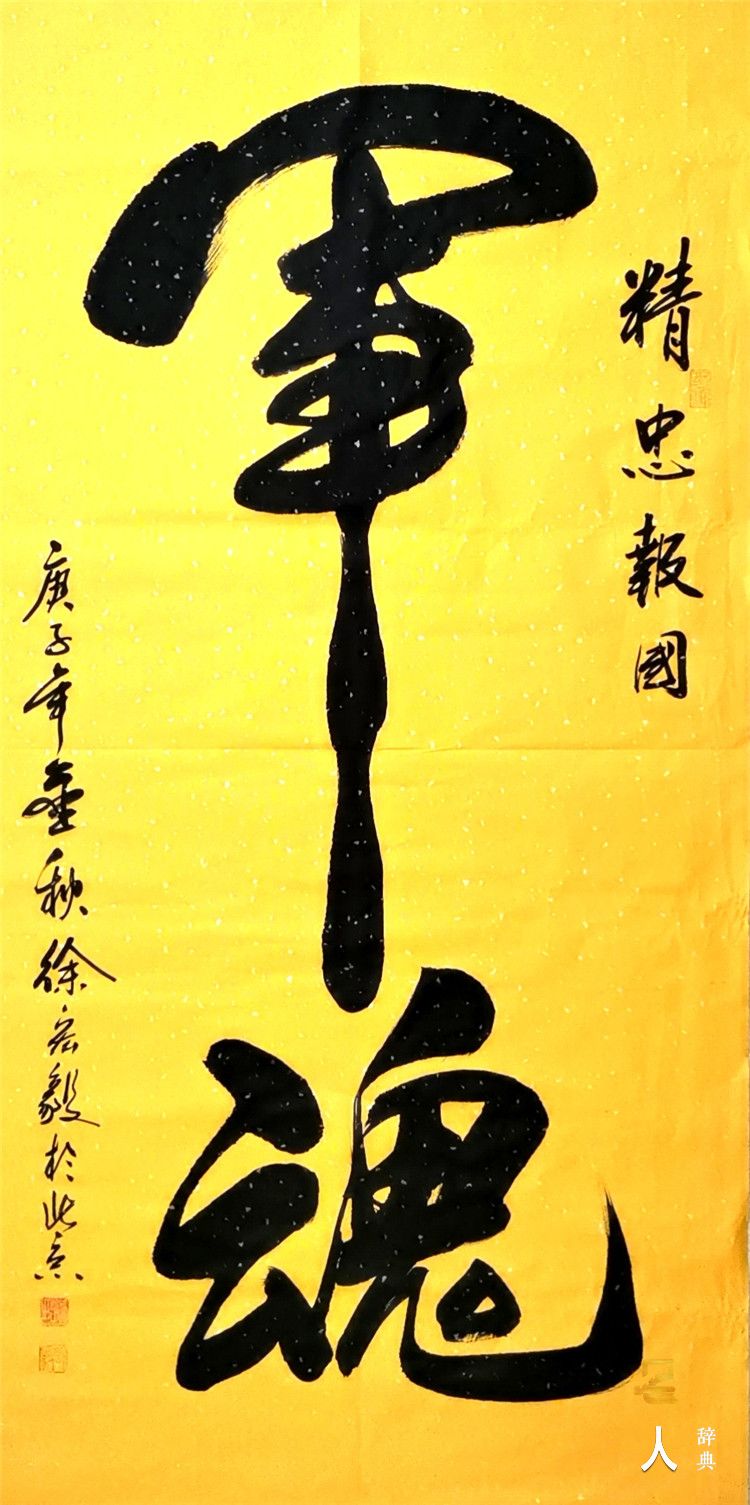 精忠報國
軍魂
庚子年金秋徐宏毅於北京
人
辞典